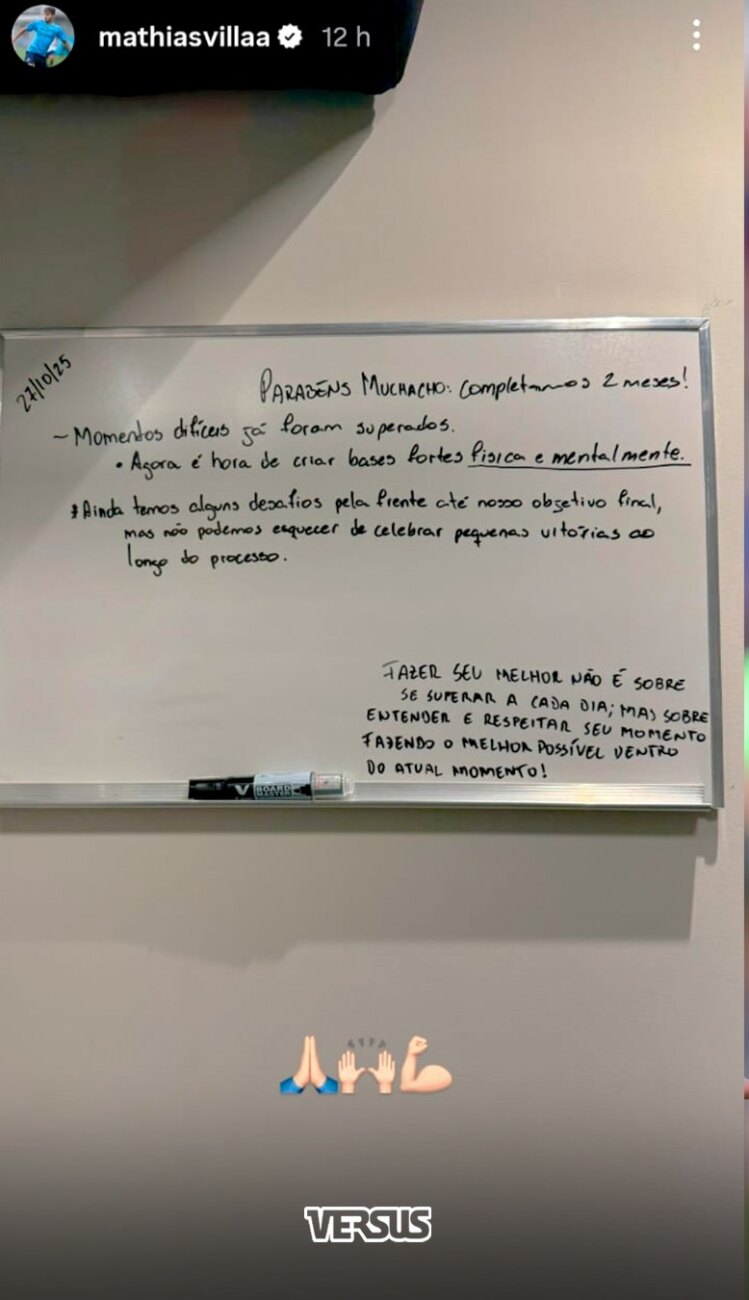 mathiasvillaa 12 h
27/10/25
PARABÉNS MUCHACHO: Completamos 2 meses!
- Momentos difíceis já foram superados.
• Agora é hora de criar bases fortes física e mentalmente.
* Ainda temos alguns desafios pela frente até nosso objetivo final,
mas não podemos esquecer de celebrar pequenas vitórias ao
longo do processo.
FAZER SEU MELHOR NÃO É SOBRE
SE SUPERAR A CADA DIA; MAS SOBRE
ENTENDER E RESPEITAR SEU MOMENTO
FAZENDO O MELHOR POSSÍVEL DENTRO
DO ATUAL MOMENTO!
V BOARD MASTER
VERSUS